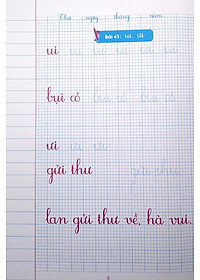 Thứ ngày tháng năm
Bài 43: ui, ưi
ui ui ui ui ui ui
bụi cỏ bụi cỏ bụi cỏ
ưi ưi ưi
gửi thư gửi thư
lan gửi thư về, hà vui.